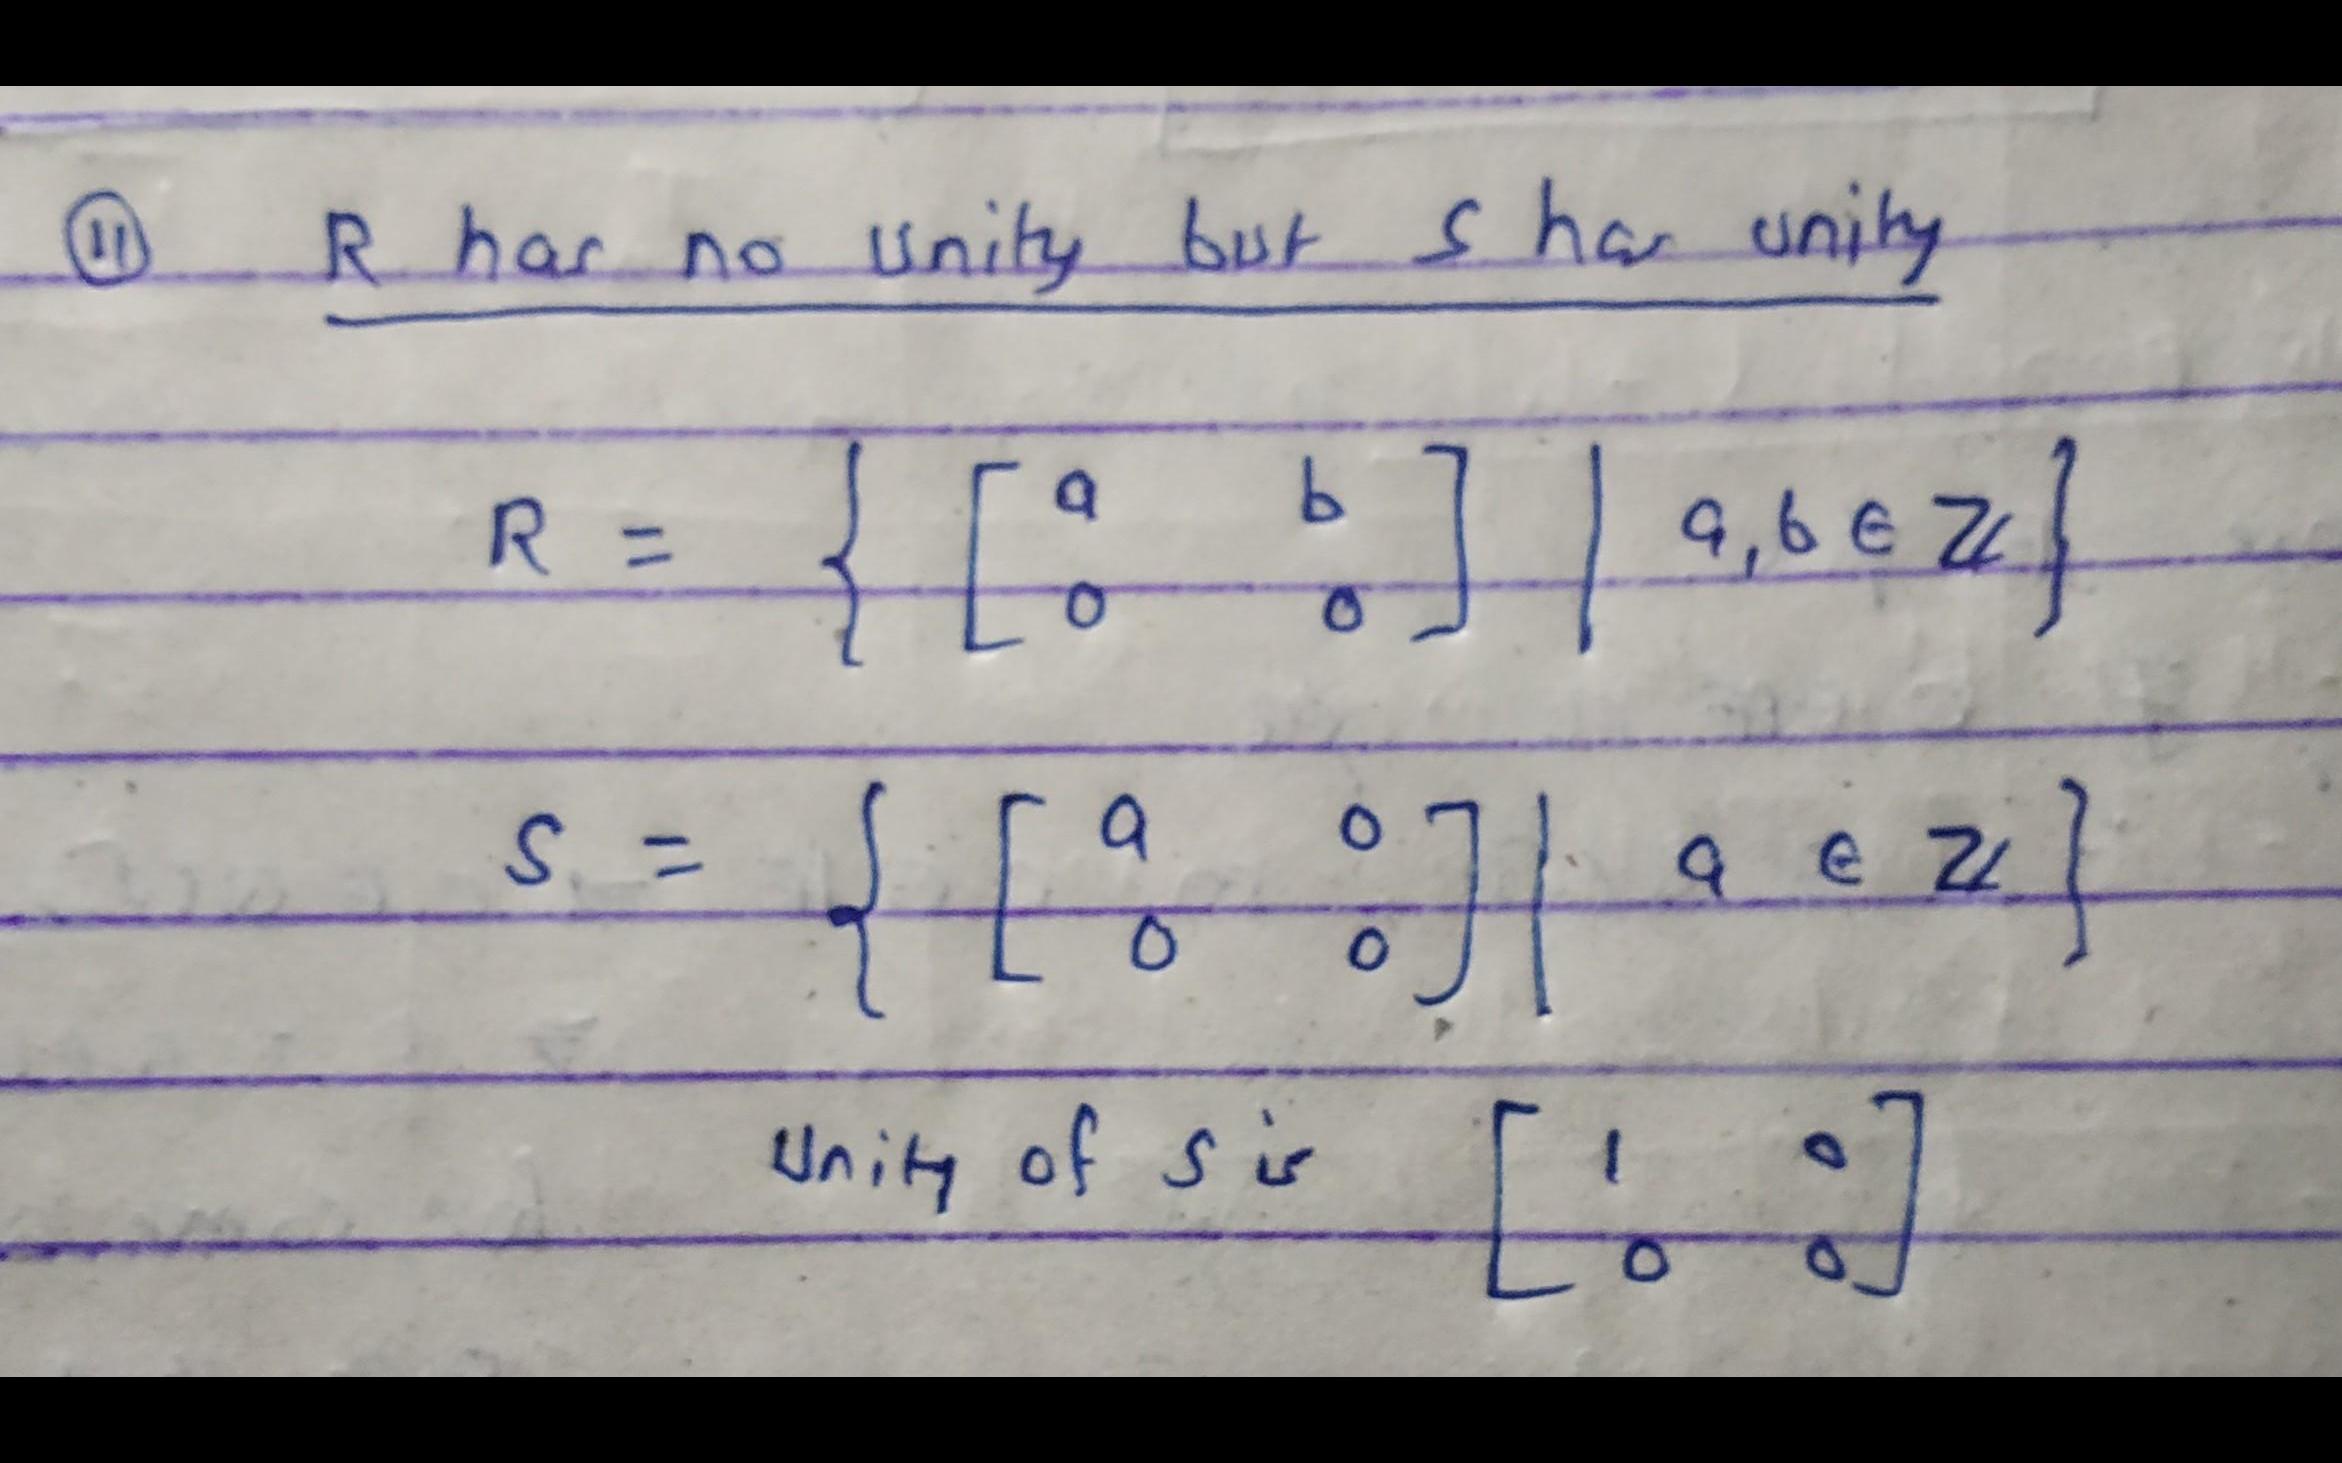 ⑪ R has no unity but S has unity
R = { [ a b
0 0 ] | a, b ∈ ℤ }
S = { [ a 0
0 0 ] | a ∈ ℤ }
Unity of S is [ 1 0
0 0 ]